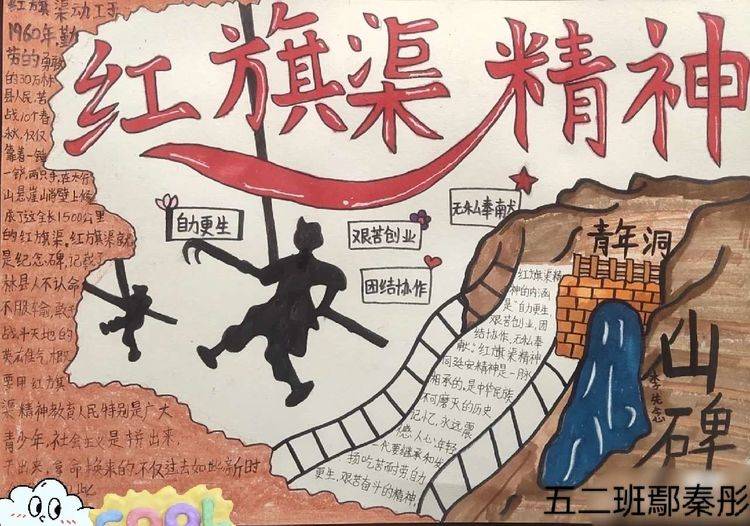 红旗渠精神
红旗渠动工于
1960年,勤
劳的
的30万林
县人民,苦
战10个春
秋,仅仅
靠着一锤
一铣,两只手,在太行
山悬崖峭壁上修
成了这全长1500公里
的红旗渠,红旗渠就
是纪念碑,记载了
林县人不认命
不服输,敢
战斗天地的
英雄气概
要用红旗
渠精神教育人民特别是广大
青少年,社会主义是拼出来,
干出来,拿命换来的,不仅过去如此,新时
自力更生
艰苦创业
团结协作
无私奉献
青年洞
红旗渠精
神的内涵
是"自力更生,
艰苦创业,团
结协作,无私奉
献":红旗渠精神
同延安精神是一脉
相承的,是中华民族
不可磨灭的历史
记忆,永远震
撼人心,年轻
一代要继承和发
扬吃苦耐劳,自力
更生,艰苦奋斗的精神,
山碑
李先念
COOL
五二班鄢秦彤